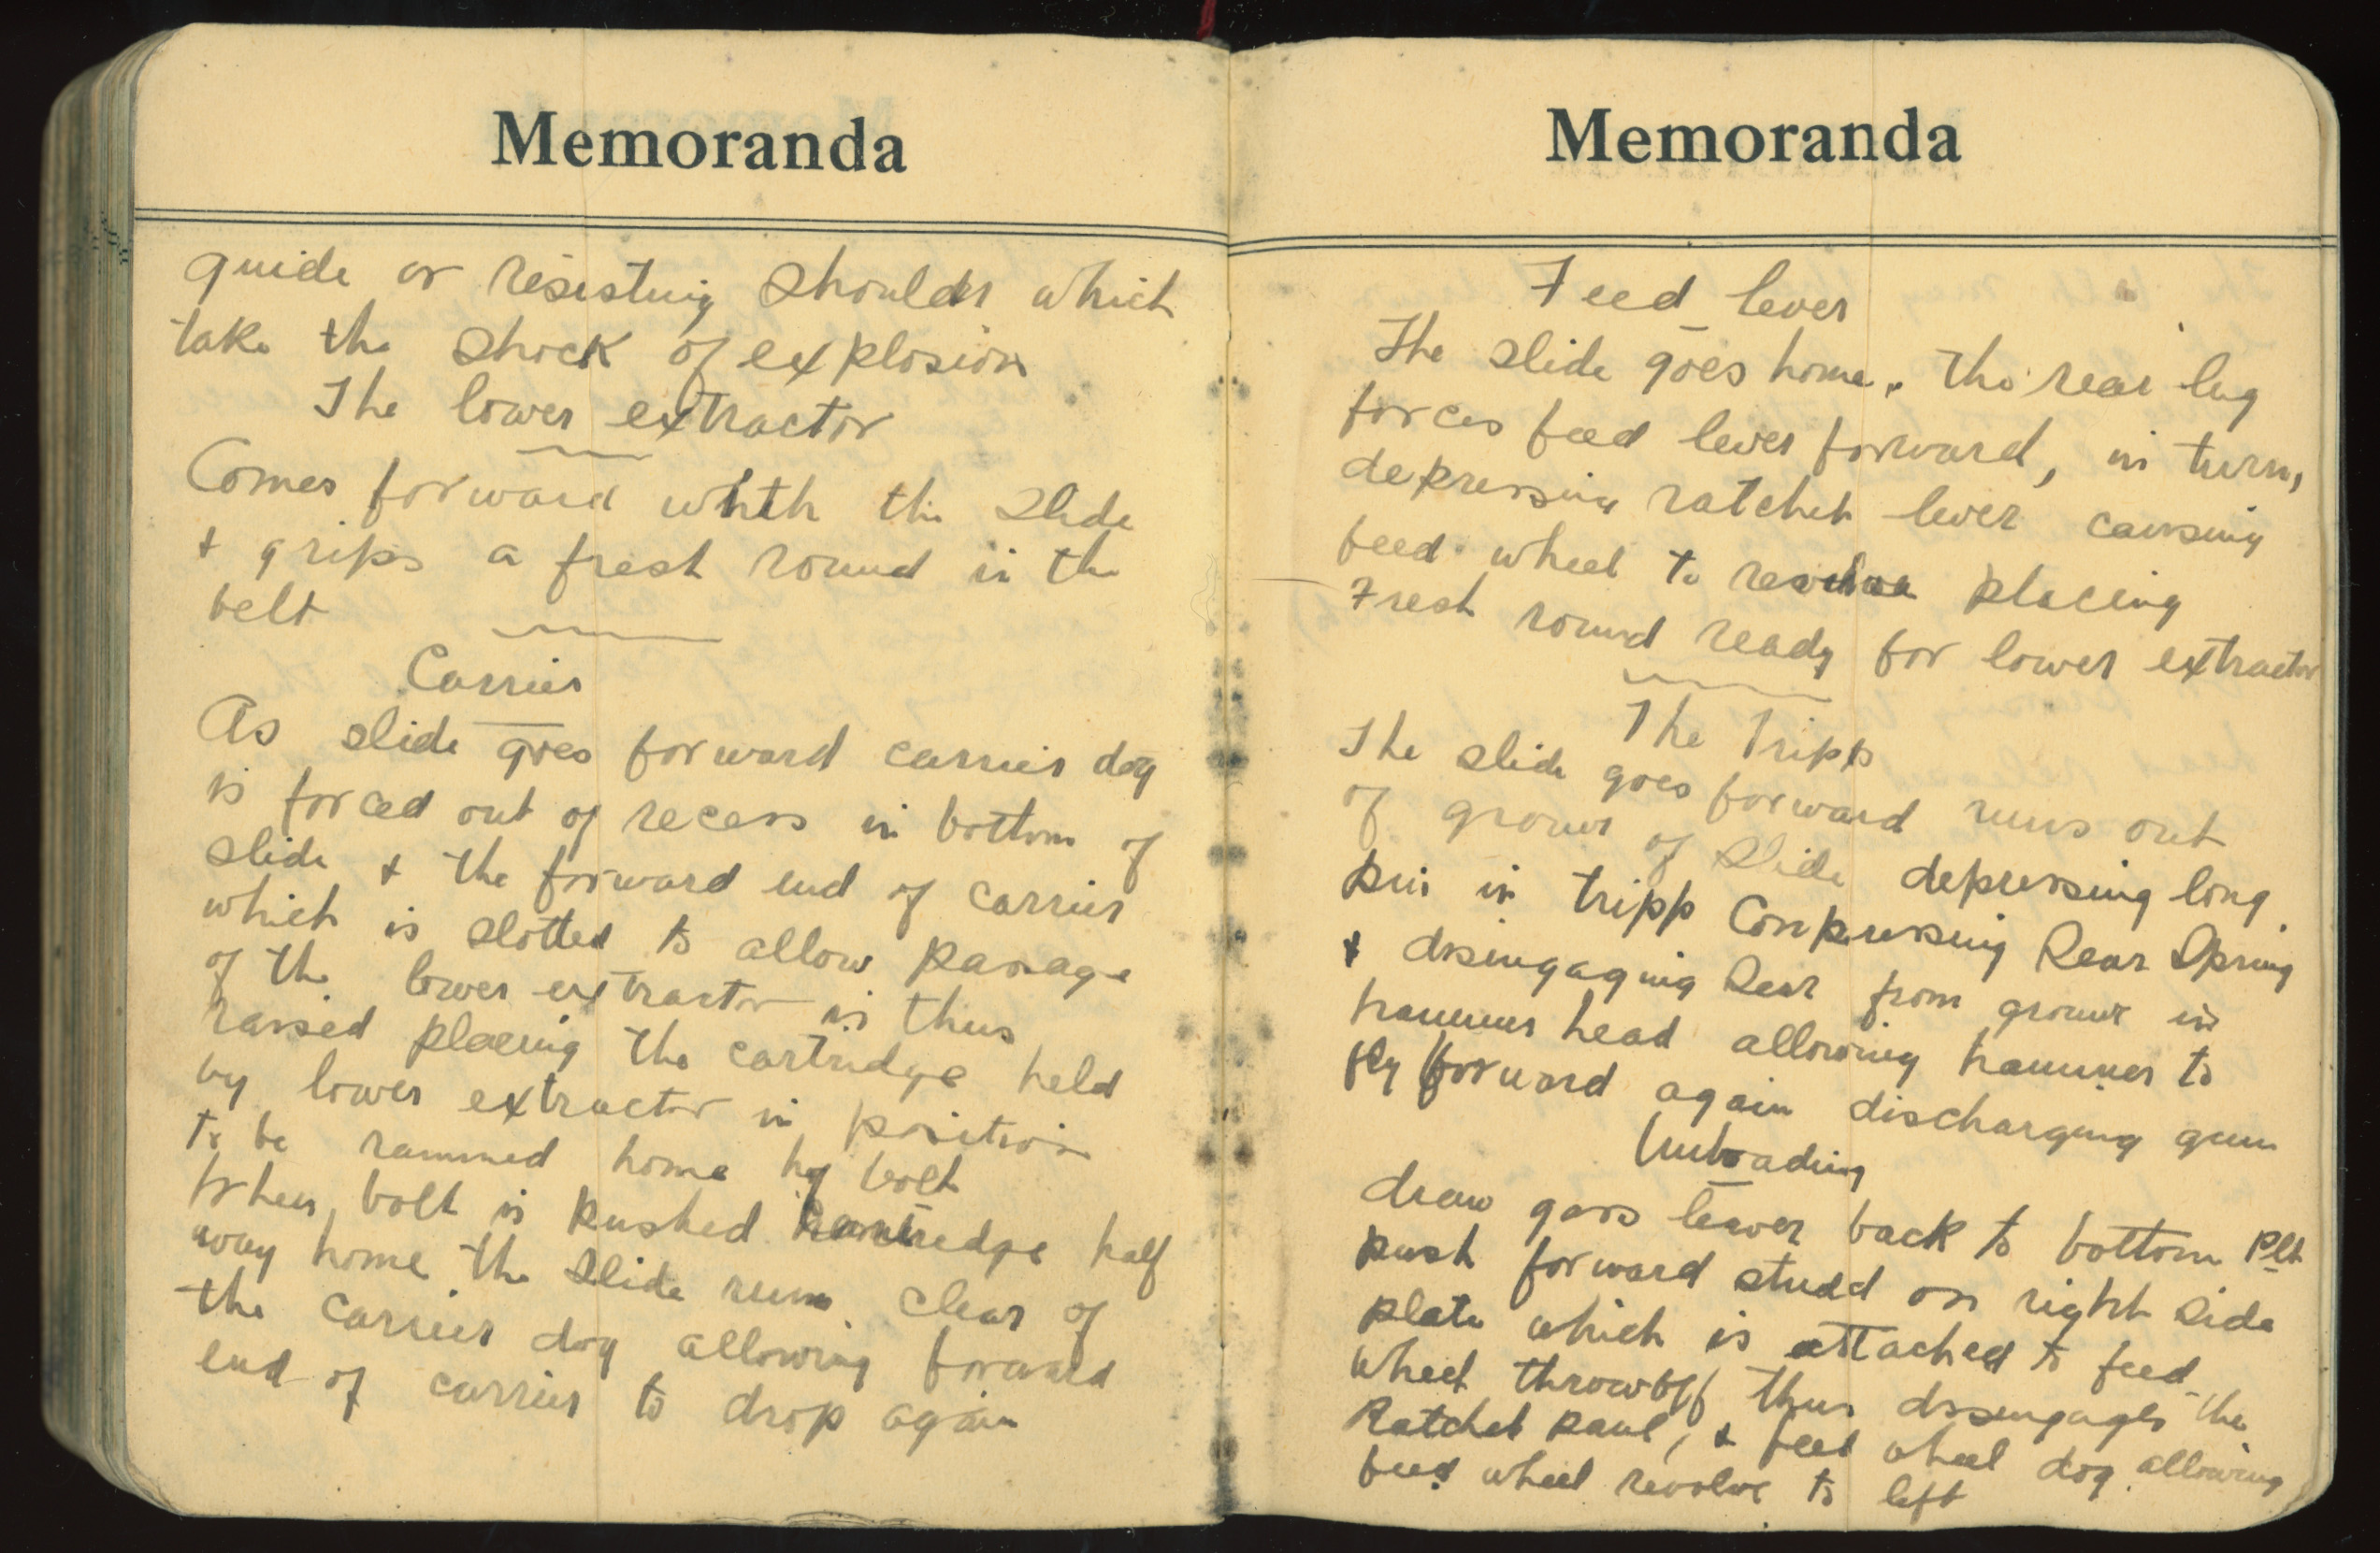 Memoranda
guide or resisting shoulder which
take the shock of explosion
The lower extractor
Comes forward whith the slide
& grips a fresh round in the
belt
Carrier
As slide goes forward carrier dog
is forced out of recess in bottom of
slide & the forward end of carrier
which is slotted to allow passage
of the lower extractor is thus
raised placing the cartridge held
by lower extractor in position
to be rammed home by bolt
When bolt is pushed half
way home the slide runs clear of
the carrier dog allowing forward
end of carrier to drop again
Memoranda
Feed lever
The slide goes home. The rear lug
forces feed lever forward, in turn,
depressing ratchet lever causing
feed wheel to revolve placing
Fresh round ready for lower extractor
The Tripp
The slide goes forward runs out
of groove of slide depressing long
pin in tripp Conpressing Sear Spring
& disengaging Sear from groove in
hammer head allowing hammer to
fly forward again discharging gun
Unloading
draw gass leaver back to bottom Plt
push forward studd on right side
plate which is attached to feed
wheel throwoff thus dissengages the
Ratchet paul, & feed wheel dog allowing
feed wheel revolve to left